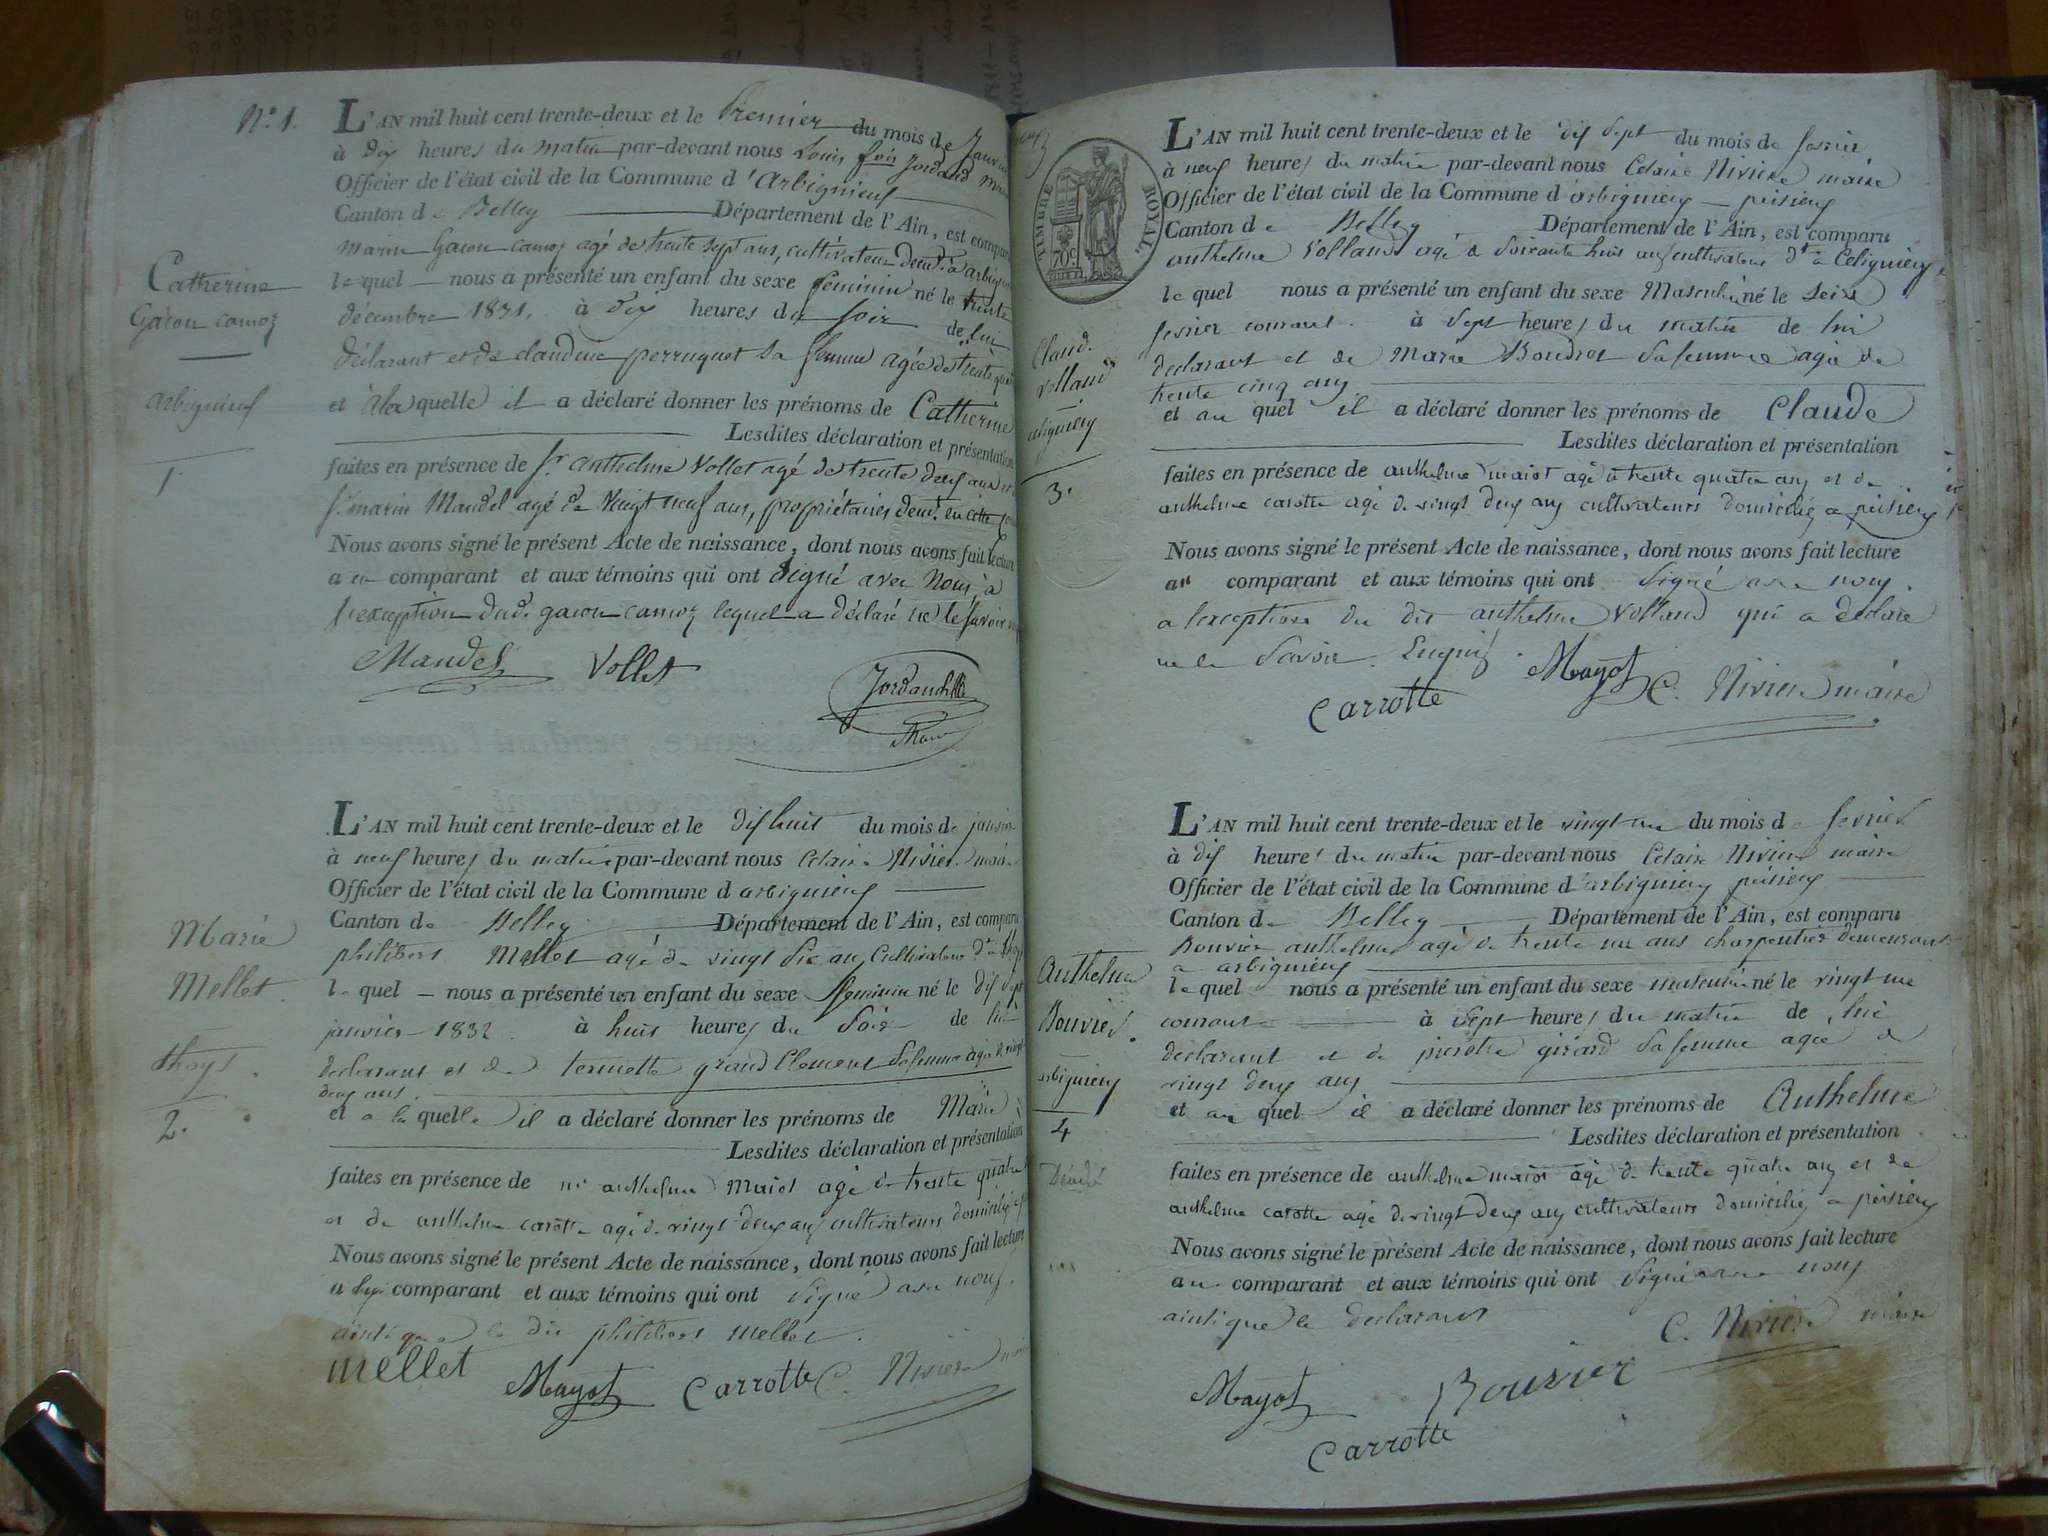 N.º 1.
L'AN mil huit cent trente-deux et le Premier du mois de Janvier
à dix heures du matin par-devant nous Louis fois Jordand
Officier de l'état civil de la Commune d'Arbignieuf
Canton de Belley Département de l'Ain, est comparu
marin Gacon camoz agé de trente sept ans, cultivateur demt. à arbignieuf
Catherine
Gacon camoz
arbignieuf
1.
le quel nous a présenté un enfant du sexe féminin né le trente
décembre 1831, à dix heures du soir de lui
déclarant et de claudine perruquet sa femme agée de trente
et à la quelle il a déclaré donner les prénoms de Catherine
Lesdites déclaration et présentation
faites en présence de Sr. anthelme Vollet agé de trente deux ans et
Sr. marin Mandel agé de vingt neuf ans, propriétaires demt. en cette
Nous avons signé le présent Acte de naissance, dont nous avons fait lecture
au comparant et aux témoins qui ont signé avec Nous, à
l'exception dud. gacon camoz lequel a déclaré ne le savoir
Mandel Vollet Jordand
L'AN mil huit cent trente-deux et le dix huit du mois de janvier
à neuf heures du matin par-devant nous Celaire Niviere maire
Officier de l'état civil de la Commune d arbignieuf
Canton de Belley Département de l'Ain, est comparu
philibert Mellet agé de vingt six ans Cultivateur dt. a thoys
Marie
Mellet.
thoys.
2.
le quel nous a présenté un enfant du sexe feminin né le dix sept
janvier 1832. à huit heures du soir de lui
declarant et de termette grand Clement sa femme agée de vingt
deux ans.
et a la quelle il a déclaré donner les prénoms de Marie
Lesdites déclaration et présentation
faites en présence de anthelme Maiot agé de trente quatre
et de anthelme carotte agé de vingt deux ans cultivateurs domiciliés
Nous avons signé le présent Acte de naissance, dont nous avons fait lecture
a comparant et aux témoins qui ont signé avec nous.
ainsi que le dit philibert mellet.
mellet Mayot Carrotte C. Niviere
TIMBRE ROYAL
70c
L'AN mil huit cent trente-deux et le dix sept du mois de fevrier
à neuf heures du matin par-devant nous Celaire Niviere maire
Officier de l'état civil de la Commune d'arbignieu peisieu
Canton de Belley Département de l'Ain, est comparu
anthelme Volland agé de soixante huit ans cultivateur dt. a Celignieu
Claud.
Volland
3.
le quel nous a présenté un enfant du sexe Masculin né le seize
fevrier courant. à sept heures du matin de lui
declarant et de Marie Boudrot sa femme agée de
trente cinq ans
et au quel il a déclaré donner les prénoms de Claude
Lesdites déclaration et présentation
faites en présence de anthelme maiot agé de trente quatre ans et de
anthelme carotte agé de vingt deux ans cultivateurs domiciliés a peisieu
Nous avons signé le présent Acte de naissance, dont nous avons fait lecture
au comparant et aux témoins qui ont signé avec nous.
a lexception du dit anthelme Volland qui a declaré
ne le savoir. Enquis.
Carrotte Mayot C. Niviere maire
L'AN mil huit cent trente-deux et le vingt un du mois de fevrier
à dix heures du matin par-devant nous Celaire Niviere maire
Officier de l'état civil de la Commune d'arbignieu peisieu
Canton de Belley Département de l'Ain, est comparu
Bouvier anthelme agé de trente un ans charpentier demeurant
a arbignieu
Anthelme
Bouvier.
arbignieu
4
Décédé
le quel nous a présenté un enfant du sexe masculin né le vingt un
courant à sept heures du matin de lui
declarant et de pierrette girard sa femme agée de
vingt deux ans
et au quel il a déclaré donner les prénoms de Anthelme
Lesdites déclaration et présentation
faites en présence de anthelme maiot agé de trente quatre ans et de
anthelme carotte agé de vingt deux ans cultivateurs domiciliés a peisieu
Nous avons signé le présent Acte de naissance, dont nous avons fait lecture
au comparant et aux témoins qui ont signé avec nous
ainsi que le declarant
C. Niviere maire
Mayot Bouvier
Carrotte